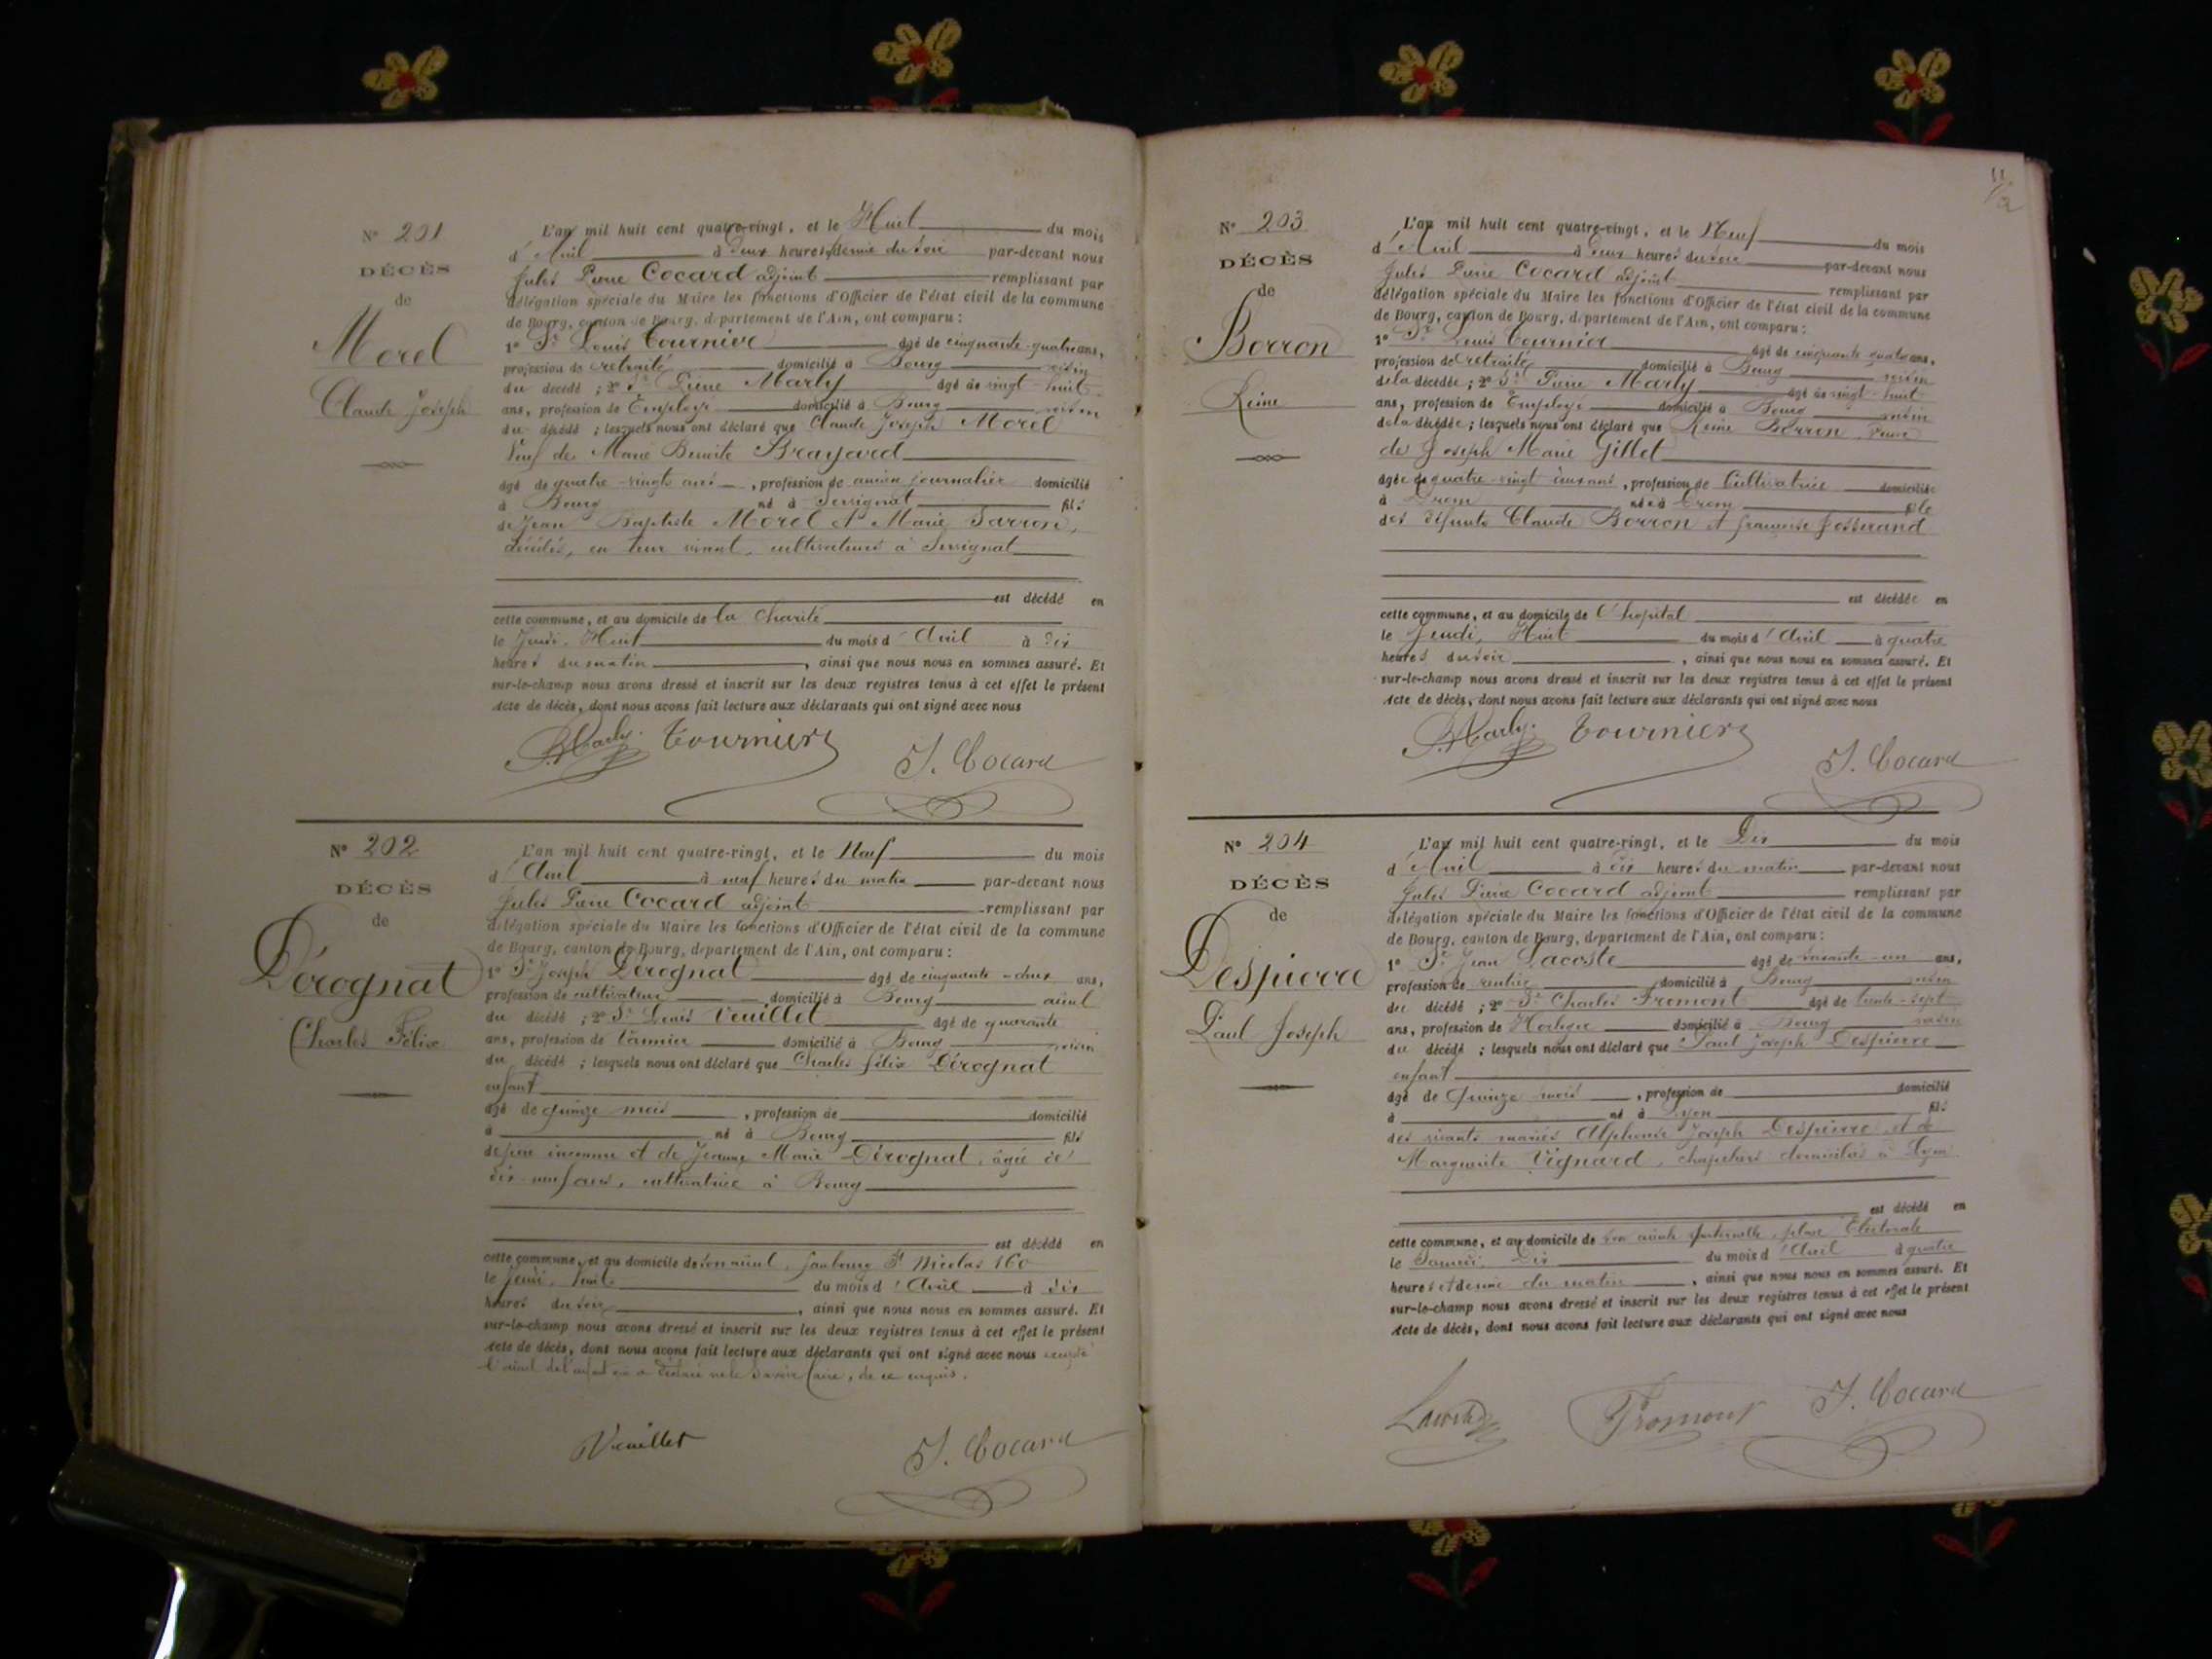 Nº 201
DÉCÈS
de
Morel
Claude Joseph
L'an mil huit cent quatre-vingt, et le Huit du mois
d'Avril à Deux heures & demie du soir par-devant nous
Jules Pierre Cocard adjoint remplissant par
délégation spéciale du Maire les fonctions d'Officier de l'état civil de la commune
de Bourg, canton de Bourg, département de l'Ain, ont comparu :
1º Sr Louis Tournier âgé de cinquante-quatre ans,
profession de retraité domicilié à Bourg voisin
du décédé ; 2º Sr Pierre Marly âgé de vingt-huit
ans, profession de Employé domicilié à Bourg voisin
du décédé ; lesquels nous ont déclaré que Claude Joseph Morel
Veuf de Marie Benoite Brayard
âgé de quatre-vingts ans, profession de ancien journalier domicilié
à Bourg né à Servignat fils
de Jean Baptiste Morel et Marie Parron,
décédés, en leur vivant, cultivateurs à Servignat
est décédé en
cette commune, et au domicile de la Charité
le Jeudi, Huit du mois d'Avril à Dix
heures du matin, ainsi que nous nous en sommes assuré. Et
sur-le-champ nous avons dressé et inscrit sur les deux registres tenus à cet effet le présent
Acte de décès, dont nous avons fait lecture aux déclarants qui ont signé avec nous
P. Marly Tournier J. Cocard
Nº 202
DÉCÈS
de
Dérognat
Charles Félix
L'an mil huit cent quatre-vingt, et le Neuf du mois
d'Avril à neuf heures du matin par-devant nous
Jules Pierre Cocard adjoint remplissant par
délégation spéciale du Maire les fonctions d'Officier de l'état civil de la commune
de Bourg, canton de Bourg, département de l'Ain, ont comparu :
1º Sr Joseph Dérognat âgé de cinquante-deux ans,
profession de cultivateur domicilié à Bourg aïeul
du décédé ; 2º Sr Louis Veuillet âgé de quarante
ans, profession de tannier domicilié à Bourg voisin
du décédé ; lesquels nous ont déclaré que Charles Félix Dérognat
enfant
âgé de quinze mois, profession de domicilié
à né à Bourg fils
de père inconnu et de Jeanne Marie Dérognat, âgée de
dix-neuf ans, cultivatrice à Bourg
est décédé en
cette commune, et au domicile de son aïeul, faubourg St Nicolas 160
le Jeudi, huit du mois d'Avril à dix
heures du soir, ainsi que nous nous en sommes assuré. Et
sur-le-champ nous avons dressé et inscrit sur les deux registres tenus à cet effet le présent
Acte de décès, dont nous avons fait lecture aux déclarants qui ont signé avec nous excepté
l'aïeul de l'enfant qui a déclaré ne le savoir faire, de ce enquis.
Veuillet J. Cocard
Nº 203
DÉCÈS
de
Borron
Reine
L'an mil huit cent quatre-vingt, et le Neuf du mois
d'Avril à Deux heures du soir par-devant nous
Jules Pierre Cocard adjoint remplissant par
délégation spéciale du Maire les fonctions d'Officier de l'état civil de la commune
de Bourg, canton de Bourg, département de l'Ain, ont comparu :
1º Sr Louis Tournier âgé de cinquante quatre ans,
profession de retraité domicilié à Bourg voisin
de la décédée ; 2º Sr Pierre Marly âgé de vingt-huit
ans, profession de Employé domicilié à Bourg voisin
de la décédée ; lesquels nous ont déclaré que Reine Borron, Veuve
de Joseph Marie Gillet
âgée de quatre-vingt ans, profession de Cultivatrice domiciliée
à Drom née à Drom fille
des défunts Claude Borron et françoise Josserand
est décédée en
cette commune, et au domicile de l'hopital
le Jeudi, Huit du mois d'Avril à quatre
heures du soir, ainsi que nous nous en sommes assuré. Et
sur-le-champ nous avons dressé et inscrit sur les deux registres tenus à cet effet le présent
Acte de décès, dont nous avons fait lecture aux déclarants qui ont signé avec nous
P. Marly Tournier J. Cocard
Nº 204
DÉCÈS
de
Despierre
Paul Joseph
L'an mil huit cent quatre-vingt, et le Dix du mois
d'Avril à dix heures du matin par-devant nous
Jules Pierre Cocard adjoint remplissant par
délégation spéciale du Maire les fonctions d'Officier de l'état civil de la commune
de Bourg, canton de Bourg, département de l'Ain, ont comparu :
1º Sr Jean Lacoste âgé de soixante-un ans,
profession de rentier domicilié à Bourg voisin
du décédé ; 2º Sr Charles Fromont âgé de trente-sept
ans, profession de Horloger domicilié à Bourg voisin
du décédé ; lesquels nous ont déclaré que Paul Joseph Despierre
enfant
âgé de Quinze mois, profession de domicilié
à né à Lyon fils
des vivants mariés Alphonse Joseph Despierre et de
Marguerite Vignard, chapeliers domiciliés à Lyon
est décédé en
cette commune, et au domicile de son aïeule paternelle, place Electorale
le Samedi, Dix du mois d'Avril à quatre
heures & demie du matin, ainsi que nous nous en sommes assuré. Et
sur-le-champ nous avons dressé et inscrit sur les deux registres tenus à cet effet le présent
Acte de décès, dont nous avons fait lecture aux déclarants qui ont signé avec nous
Lacoste Fromont J. Cocard